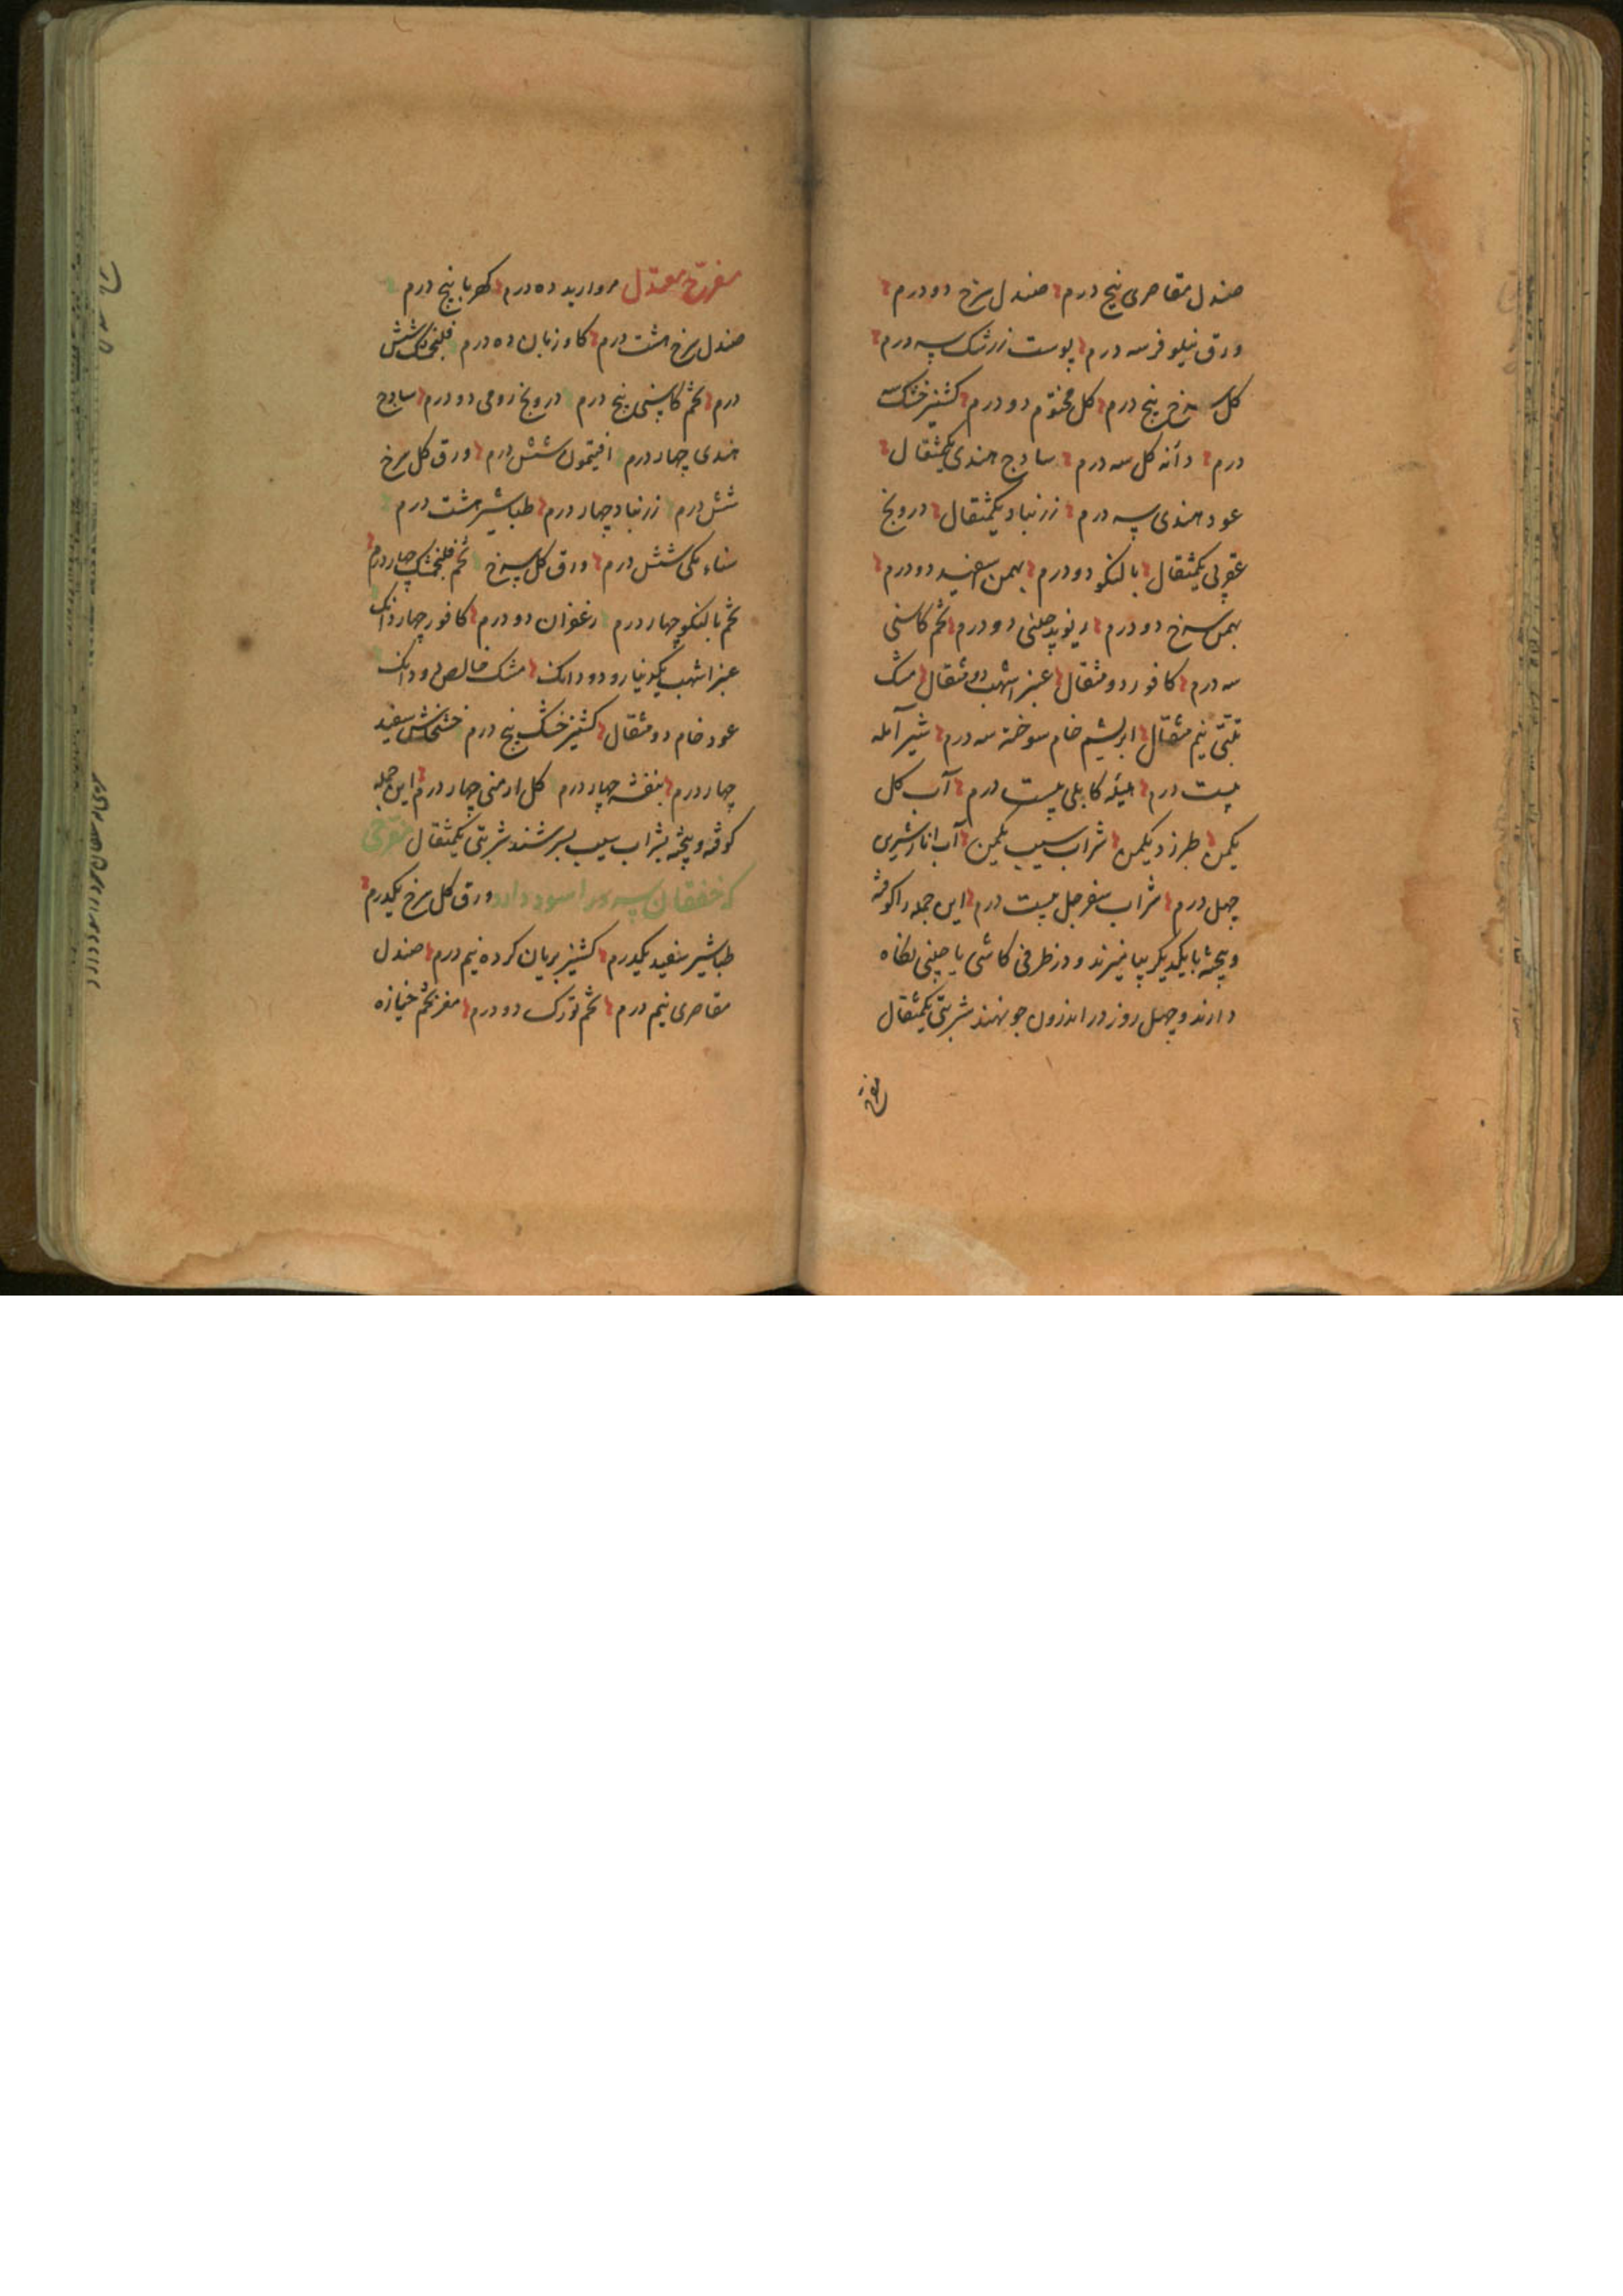 صندل مقاصری پنج درم صندل سرخ دو درم
ورق نیلوفر سه درم پوست زرشک سه درم
کل سرخ پنج درم کل مختوم دو درم کشنیز خشک سه
درم دانه کل سه درم سادج هندی یکمثقال
عود هندی سه درم زرنباد یکمثقال درونج
عقربی یکمثقال بالنکو دو درم بهمن سفید دو درم
بهمن سرخ دو درم ریوند چینی دو درم تخم کاسنی
سه درم کافور دو مثقال عنبر اشهب دو مثقال مشک
تبتی نیم مثقال ابریشم خام سوخته سه درم شیر آمله
بیست درم هلیله کابلی بیست درم آب کل
یکمن طبرزد یکمن شراب سیب یکمن آب انار شیرین
چهل درم شراب سفرجل بیست درم این جمله را کوفته
و بیخته با یکدیکر بیامیزند و در ظرفی کاشی یا چینی نکاه
دارند و چهل روز در اندرون جو نهند شربتی یکمثقال
مفرح
مفرّح معتدل مروارید ده درم کهربا پنج درم
صندل سرخ هشت درم کاوزبان ده درم فلنجمشک شش
درم تخم کاسنی پنج درم درونج رومی دو درم سادج
هندی چهار درم افتیمون شش درم ورق کل سرخ
شش درم زرنباد چهار درم طباشیر هشت درم
سناء مکی شش درم ورق کل سرخ تخم فلنجمشک چهار درم
تخم بالنکو چهار درم زعفران دو درم کافور چهار دانک
عنبر اشهب یکدینار و دو دانک مشک خالص دو دانک
عود خام دو مثقال کشنیز خشک پنج درم خشخاش سفید
چهار درم بنفشه چهار درم کل ارمنی چهار درم این جمله
کوفته و بیخته بشراب سیب بسرشند شربتی یکمثقال
که خفقان را سود دارد ورق کل سرخ یکدرم
طباشیر سفید یکدرم کشنیز بریان کرده نیم درم صندل
مقاصری نیم درم تخم تورک دو درم مغز تخم خیازه